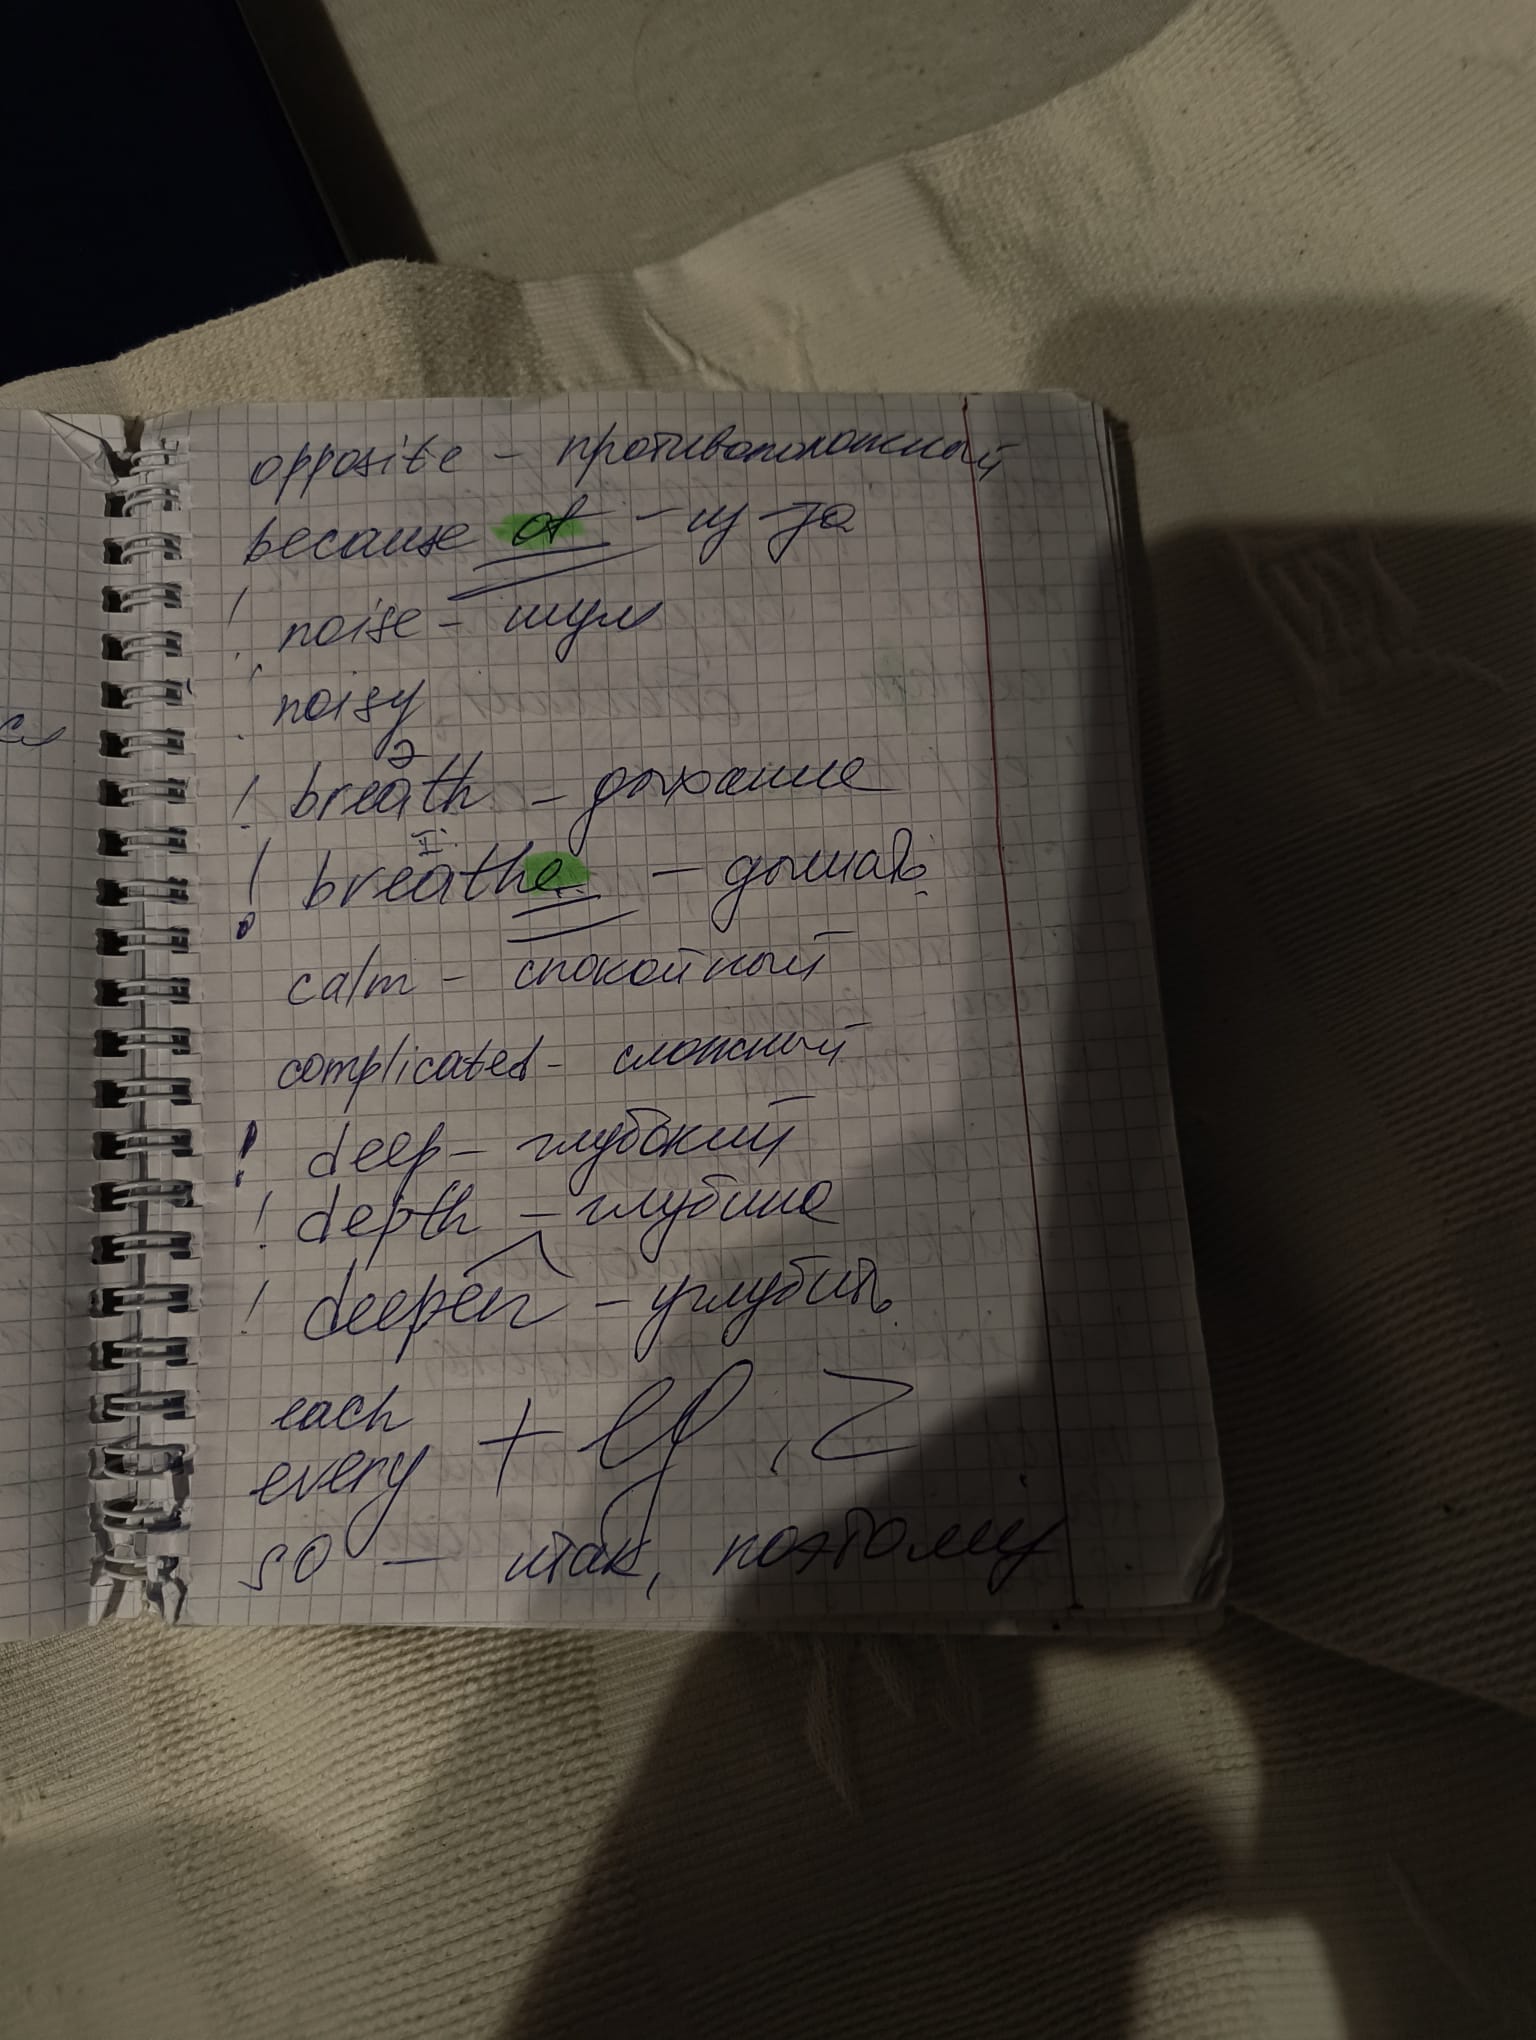 opposite - противоположный
because of - из-за
! noise - шум
! noisy
э
! breath - дыхание
I:
! breathe - дышать
calm - спокойный
complicated - сложный
! deep - глубокий
! depth - глубина
! deepen - углубить
each
every +
so - итак, поэтому